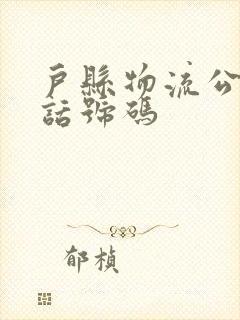 戶縣物流公
話號碼
郁楨